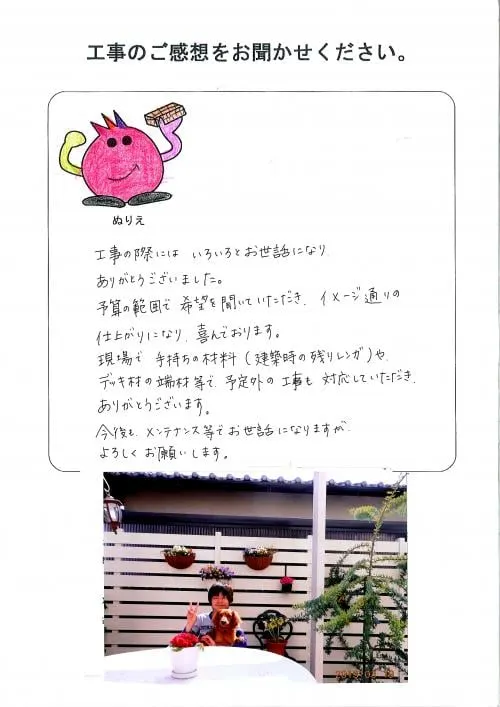 工事のご感想をお聞かせください。
ぬりえ
工事の際には いろいろとお世話になり
ありがとうございました。
予算の範囲で 希望を聞いていただき、イメージ通りの
仕上がりになり、喜んでおります。
現場で 手持ちの材料(建築時の残りレンガ)や、
デッキ材の端材等で、予定外の工事も 対応していただき、
ありがとうございます。
今後も、メンテナンス等でお世話になりますが、
よろしくお願いします。